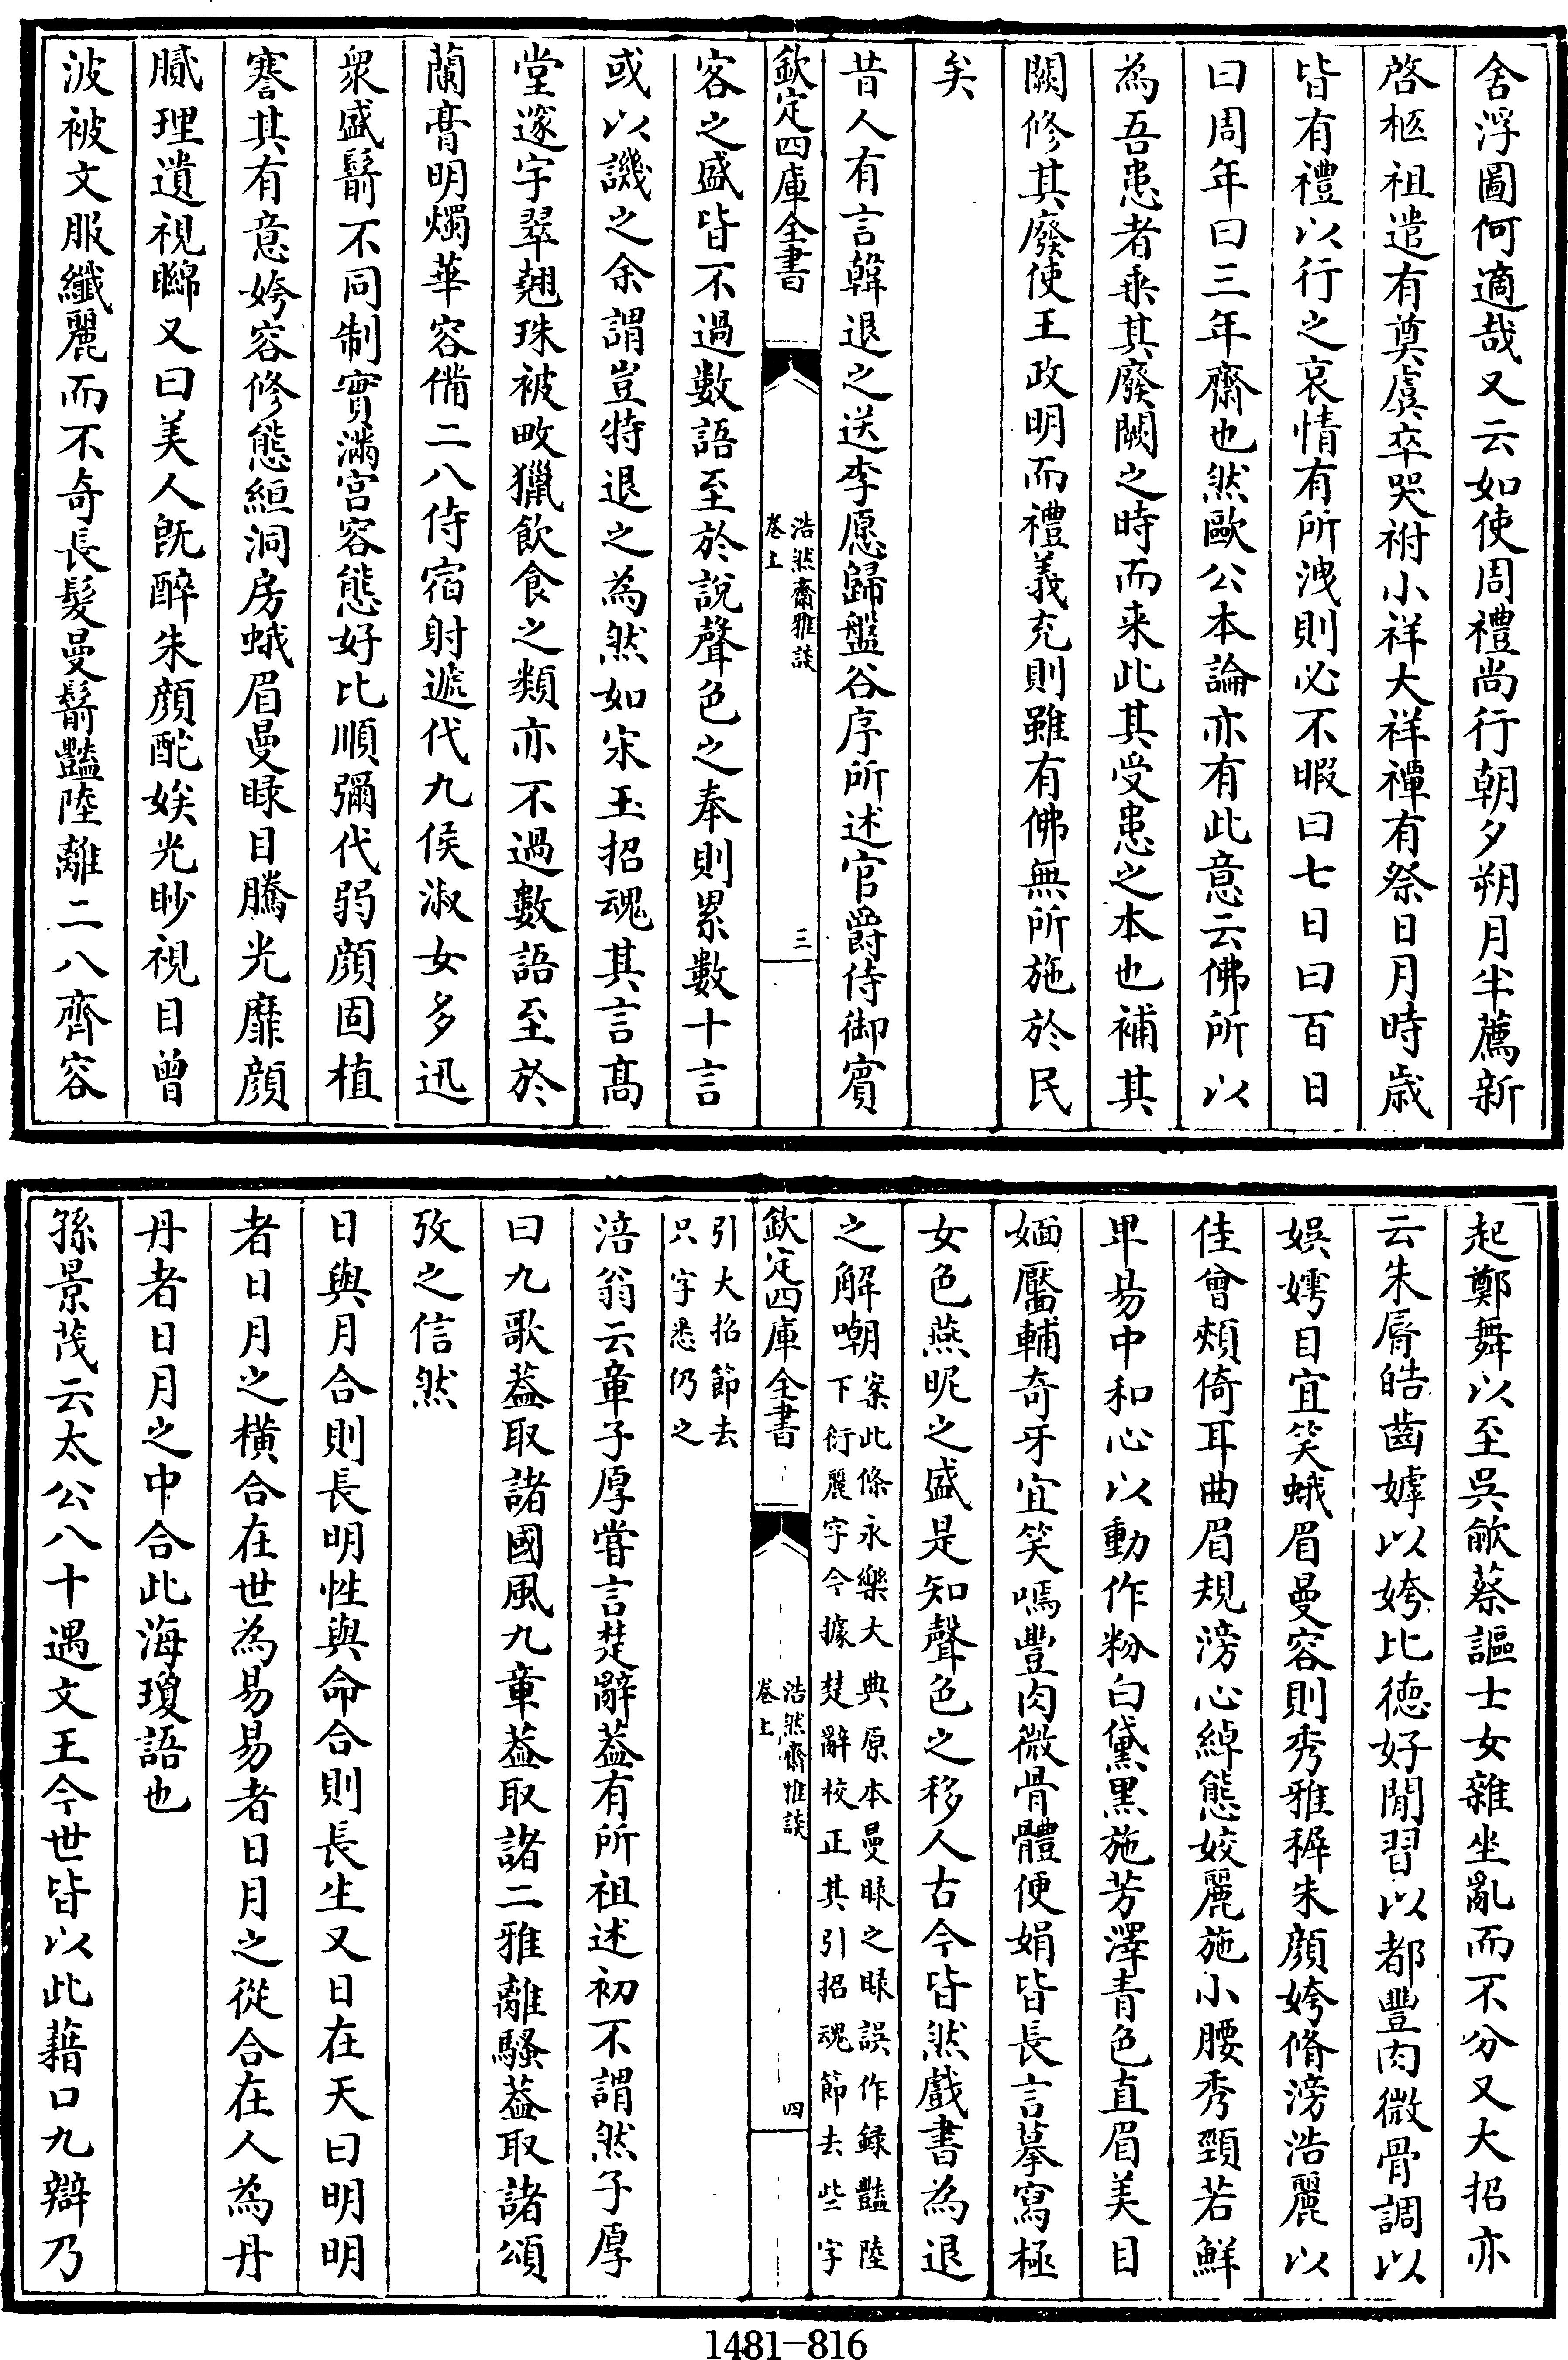 舍浮圖何適哉又云如使周禮尚行朝夕朔月半薦新
啓柩祖遣有奠虞卒哭祔小祥大祥禫有祭日月時歳
皆有禮以行之哀情有所洩則必不暇曰七日曰百日
曰周年曰三年齋也然歐公本論亦有此意云佛所以
為吾患者乗其廢闕之時而来此其受患之本也補其
闕修其廢使王政明而禮義充則雖有佛無所施於民
矣
昔人有言韓退之送李愿歸盤谷序所述官爵侍御賓
欽定四庫全書
浩然齋雅談
卷上
三
客之盛皆不過數語至於說聲色之奉則累數十言
或以譏之余謂豈特退之為然如宋玉招魂其言髙
堂邃宇翠翹珠被畋獵飲食之類亦不過數語至於
蘭膏明燭華容備二八侍宿射遞代九侯淑女多迅
衆盛鬋不同制實滿宫容態好比順彌代弱顔固植
謇其有意姱容修態絚洞房蛾眉曼睩目騰光靡顔
膩理遺視矊又曰美人既醉朱顔酡娭光眇視目曾
波被文服纖麗而不奇長髮曼鬋豔陸離二八齊容
起鄭舞以至吳歈蔡謳士女雜坐亂而不分又大招亦
云朱脣皓齒嫭以姱比徳好閒習以都豐肉微骨調以
娯嫮目宜笑蛾眉曼容則秀雅穉朱顔姱脩滂浩麗以
佳曾頰倚耳曲眉規滂心綽態姣麗施小腰秀頸若鮮
卑易中和心以動作粉白黛黑施芳澤青色直眉美目
媔靨輔奇牙宜笑嘕豐肉微骨體便娟皆長言摹寫極
女色燕昵之盛是知聲色之移人古今皆然戲書為退
之解嘲案此條永樂大典原本曼睩之睩誤作録豔陸
下衍麗字今據楚辭校正其引招魂節去些字
欽定四庫全書
浩然齋雅談
卷上
四
引大招節去
只字悉仍之
涪翁云章子厚嘗言楚辭葢有所祖述初不謂然子厚
曰九歌葢取諸國風九章葢取諸二雅離騷葢取諸頌
攷之信然
日與月合則長明性與命合則長生又日在天曰明明
者日月之橫合在世為易易者日月之從合在人為丹
丹者日月之中合此海瓊語也
孫景茂云太公八十遇文王今世皆以此藉口九辯乃
1481-816